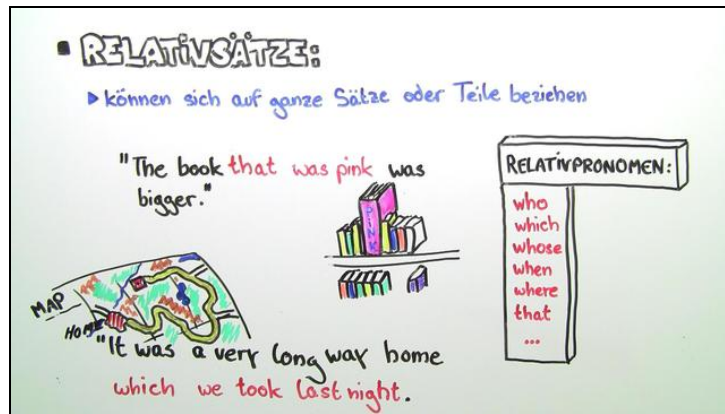 ▪ RELATIVSÄTZE:
▶ können sich auf ganze Sätze oder Teile beziehen
"The book that was pink was
bigger."
PINK
RELATIVPRONOMEN:
who
which
whose
when
where
that
...
MAP
HOME
"It was a very long way home
which we took last night.